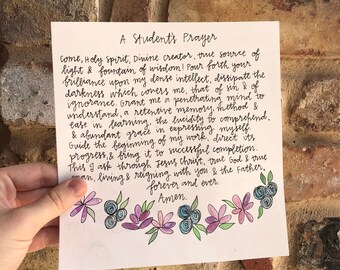 A Student's Prayer
Come, Holy Spirit, Divine Creator, true source of
light & fountain of wisdom! Pour forth your
brilliance upon my dense intellect, dissipate the
darkness which covers me, that of sin & of
ignorance. Grant me a penetrating mind to
understand, a retentive memory, method &
ease in learning, the lucidity to comprehend,
& abundant grace in expressing myself.
Guide the beginning of my work, direct its
progress, & bring it to successful completion.
This I ask through Jesus Christ, true God & true
man, living & reigning with you & the Father,
forever and ever.
Amen.